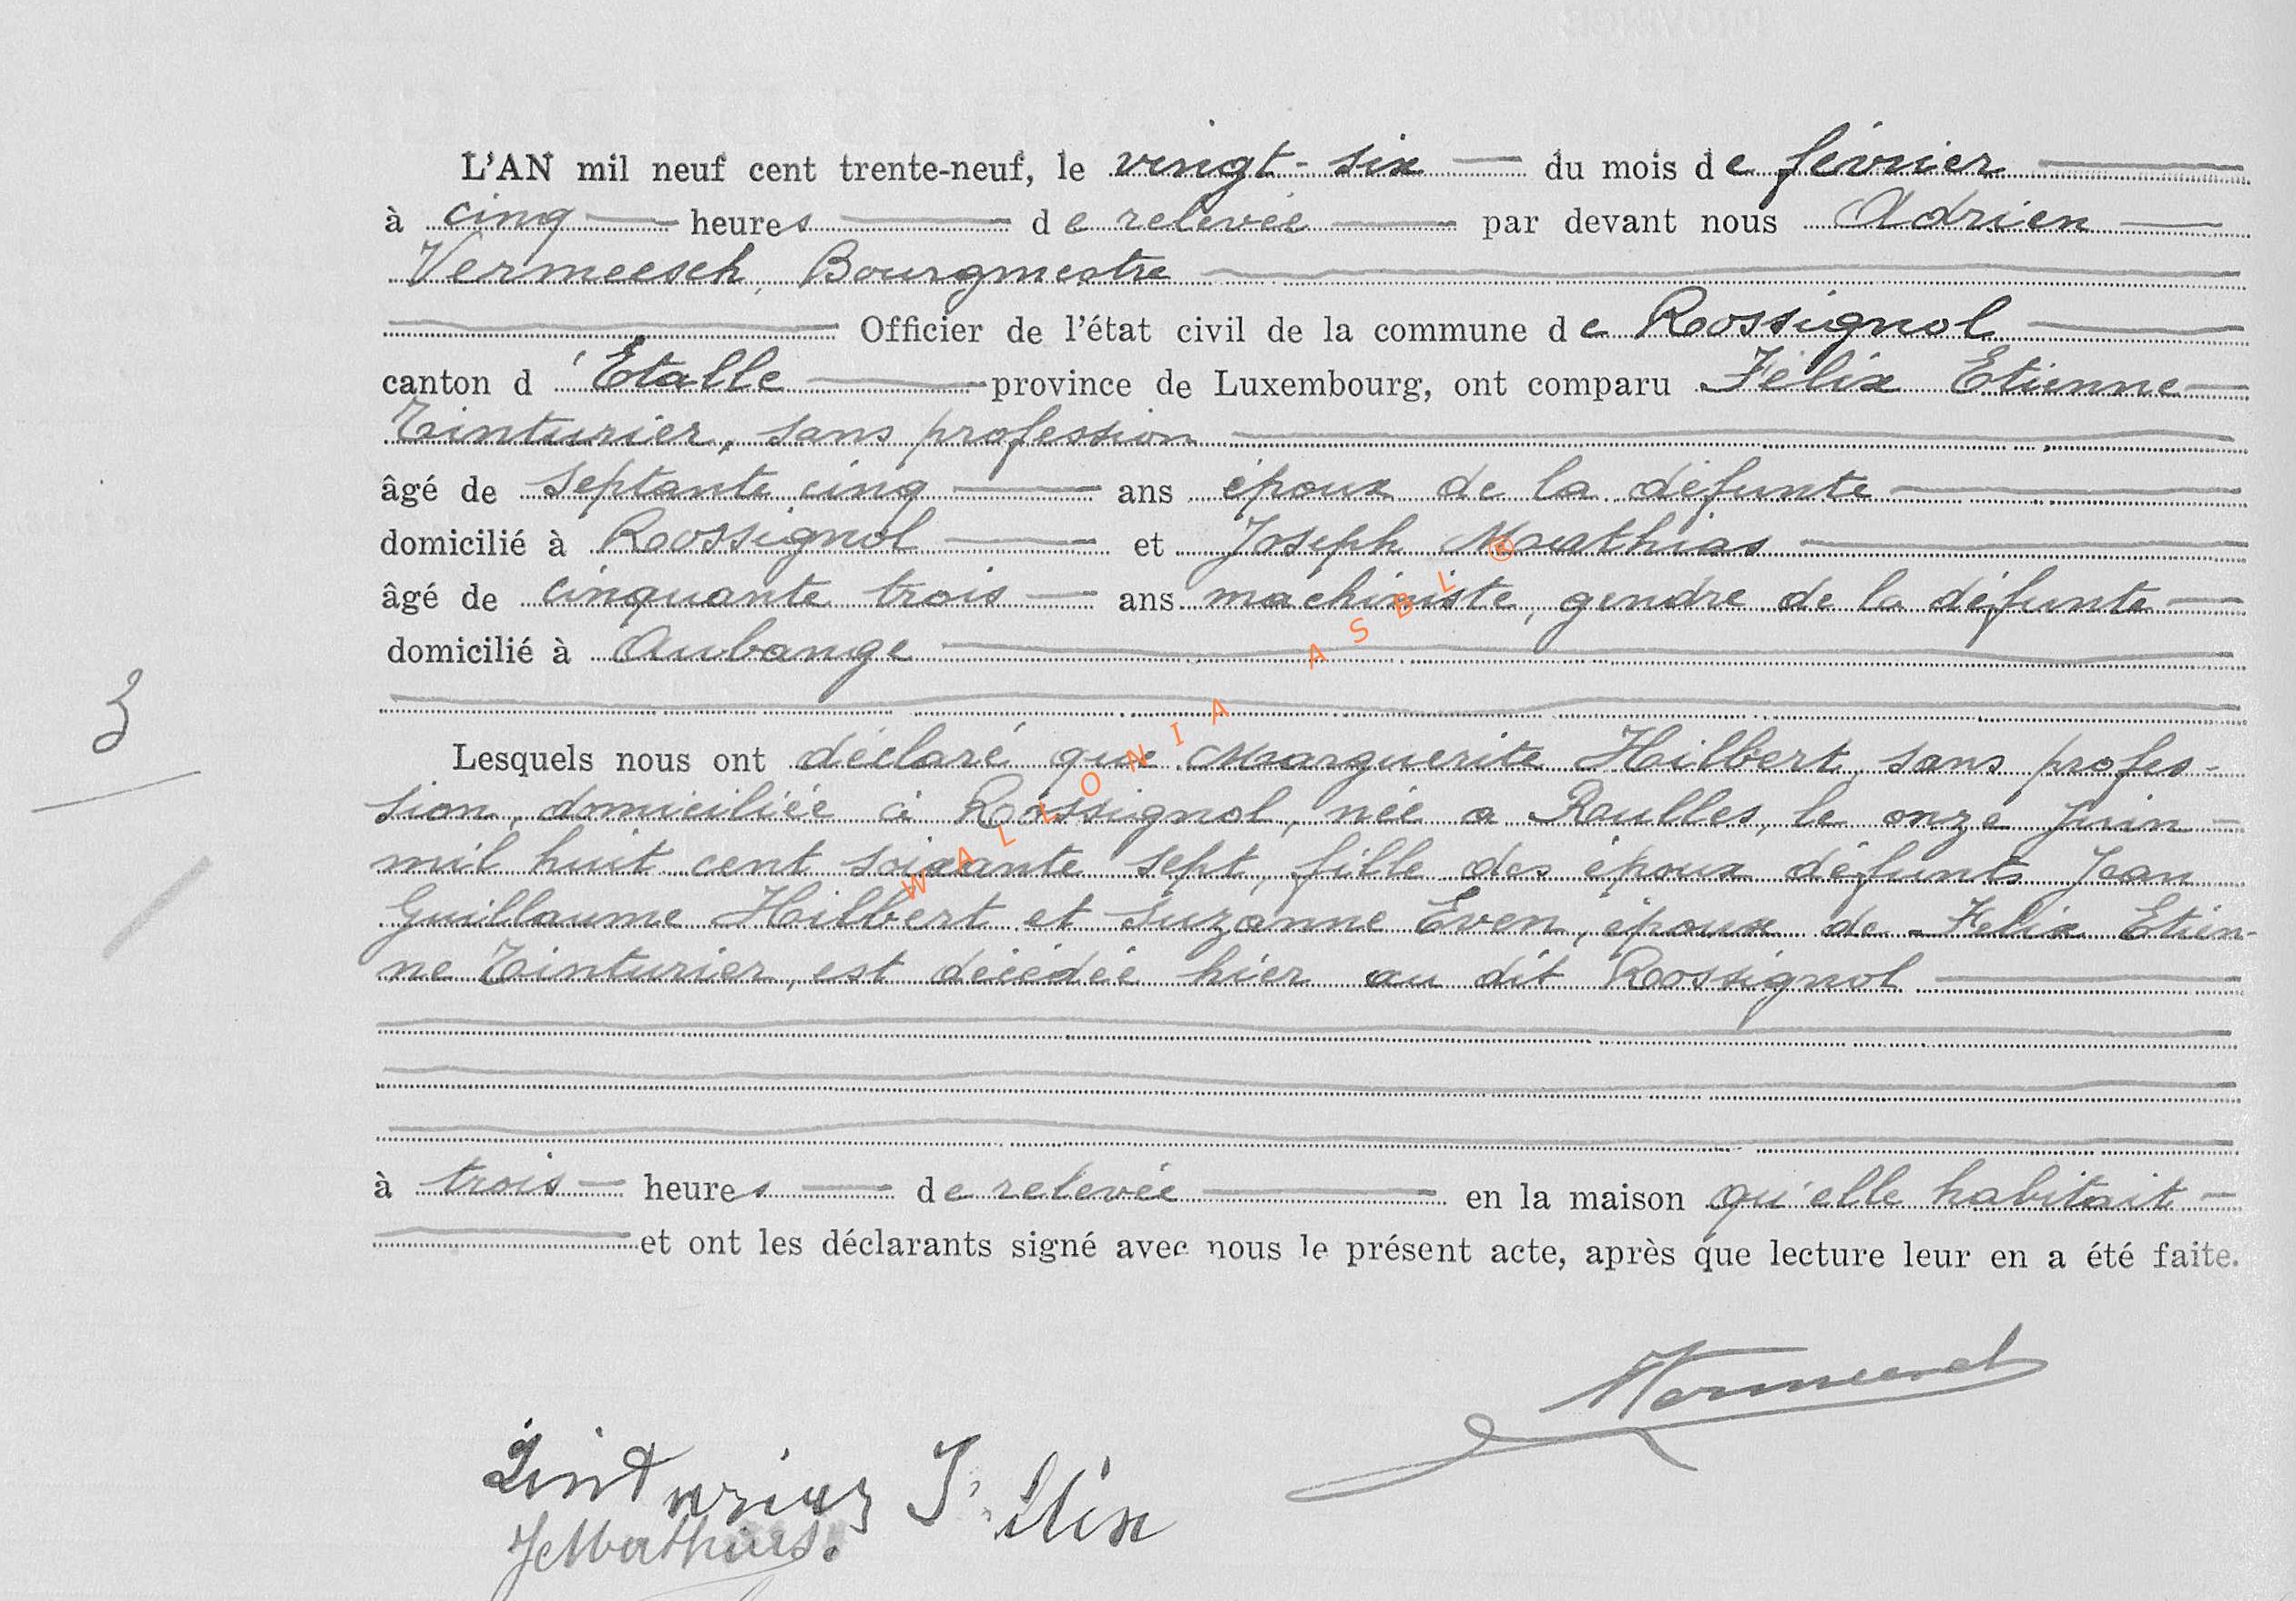 L'AN mil neuf cent trente-neuf, le vingt-six du mois de février
à cinq heures de relevée par devant nous Adrien
Vermeesch, Bourgmestre
Officier de l'état civil de la commune de Rossignol
canton d'Etalle province de Luxembourg, ont comparu Félix Etienne
Tinturier, sans profession
âgé de septante cinq ans époux de la défunte
domicilié à Rossignol et Joseph Mathias
âgé de cinquante trois ans machiniste, gendre de la défunte
domicilié à Aubange
3
Lesquels nous ont déclaré que Marguerite Hilbert, sans profes-
sion, domiciliée à Rossignol, née a Rulles, le onze Juin
mil huit cent soixante sept, fille des époux défunts Jean
Guillaume Hilbert et Suzanne Even, époux de Felix Etien-
ne Tinturier, est décédée hier au dit Rossignol
à trois heures de relevée en la maison qu'elle habitait
et ont les déclarants signé avec nous le présent acte, après que lecture leur en a été faite.
WALLONIA ASBL ®
Vermeesch
Tinturier Félix
J Mathias.